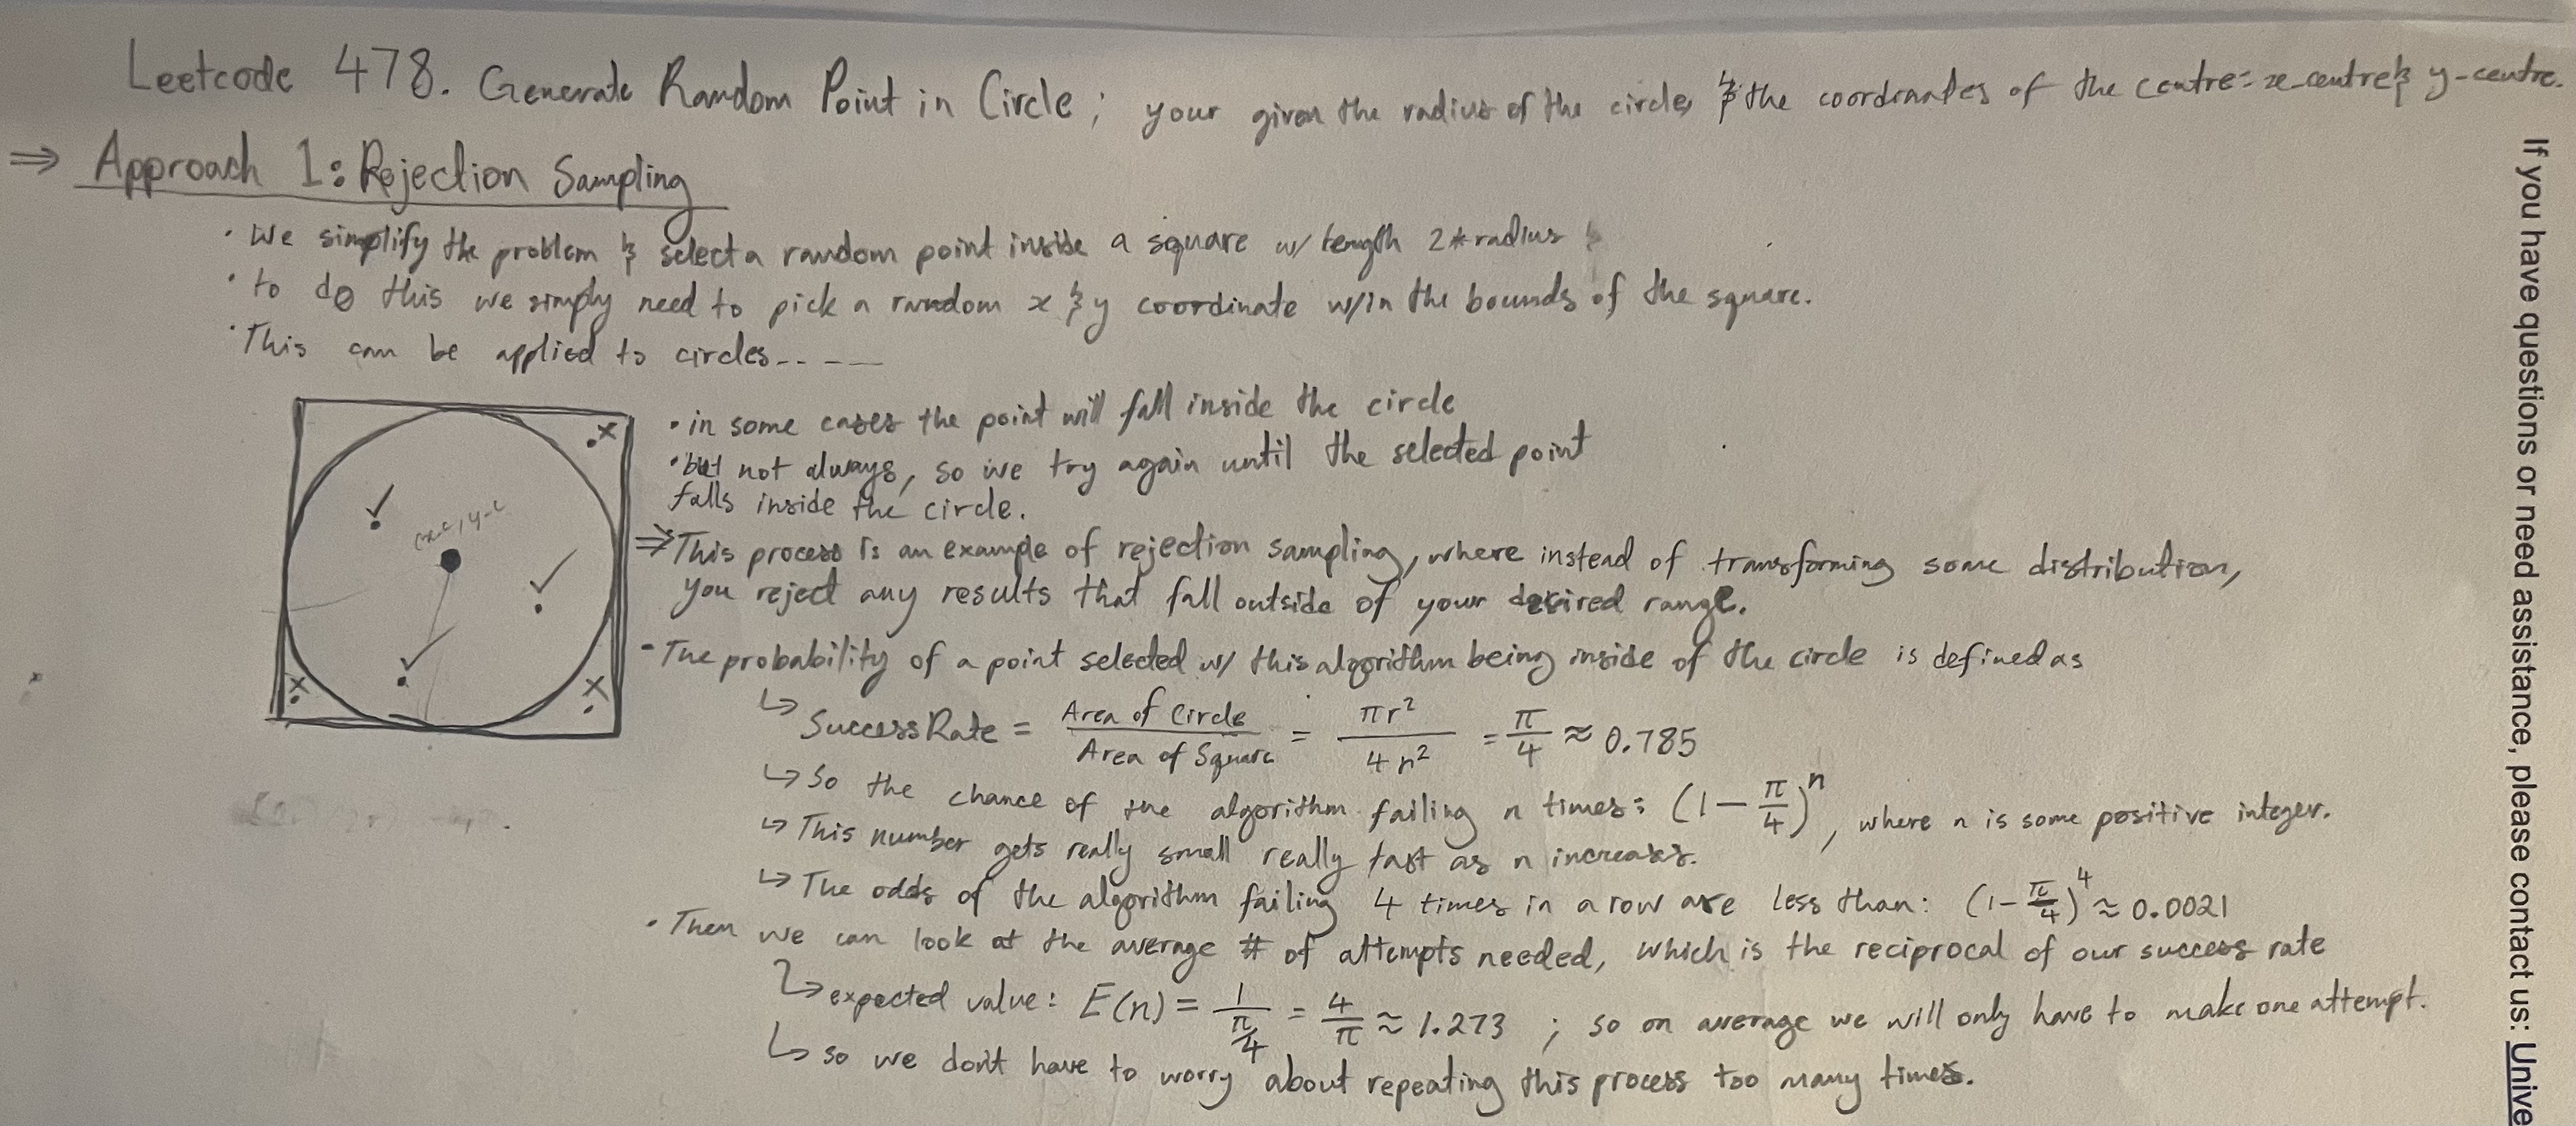 Leetcode 478. Generate Random Point in Circle; your given the radius of the circle & the coordinates of the centre: x-centre & y-centre.
⇒ Approach 1: Rejection Sampling
· We simplify the problem & select a random point inside a square w/ length 2*radius
· to do this we simply need to pick a random x & y coordinate w/in the bounds of the square.
· This can be applied to circles-- — —
· in some cases the point will fall inside the circle
· but not always, so we try again until the selected point
falls inside the circle.
⇒ This process is an example of rejection sampling, where instead of transforming some distribution,
you reject any results that fall outside of your desired range.
- The probability of a point selected w/ this algorithm being inside of the circle is defined as
↳ Success Rate = Area of Circle / Area of Square = πr² / 4r² = π/4 ≈ 0.785
↳ So the chance of the algorithm failing n times: (1 - π/4)ⁿ, where n is some positive integer.
↳ This number gets really small really fast as n increases.
↳ The odds of the algorithm failing 4 times in a row are less than: (1 - π/4)⁴ ≈ 0.0021
· Then we can look at the average # of attempts needed, which is the reciprocal of our success rate
↳ expected value: E(n) = 1/(π/4) = 4/π ≈ 1.273 ; so on average we will only have to make one attempt.
↳ so we don't have to worry about repeating this process too many times.
If you have questions or need assistance, please contact us: Unive